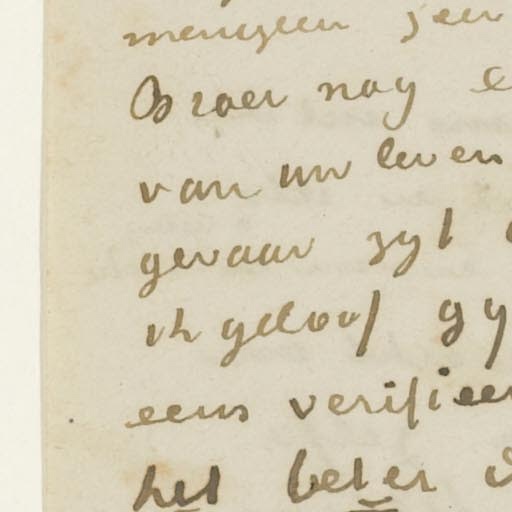 menigeen zeer
Broer nog
van uw leven
gevaar zyt
ik geloof gy
eens verifieer
het beter